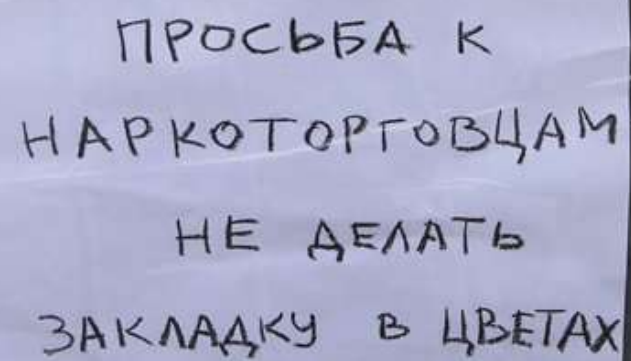 ПРОСЬБА К
НАРКОТОРГОВЦАМ
НЕ ДЕЛАТЬ
ЗАКЛАДКУ В ЦВЕТАХ